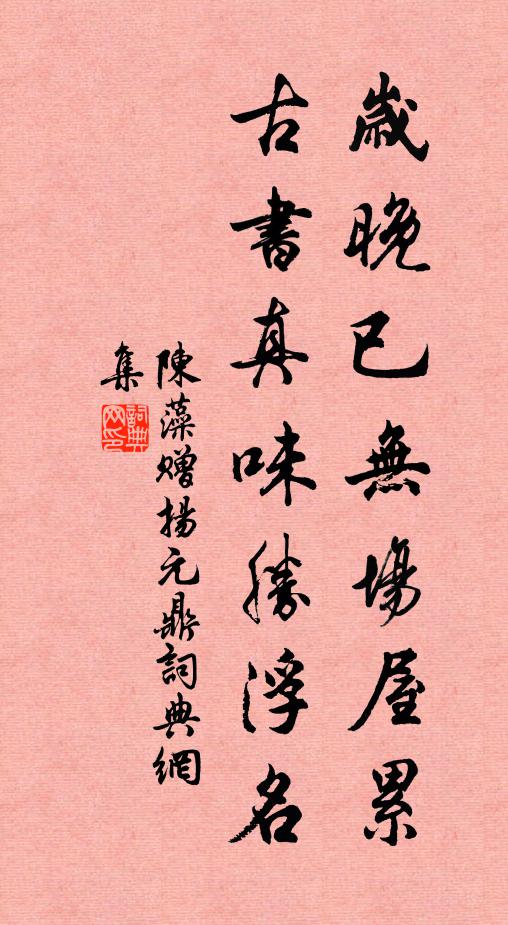 歲晚已無場屋累
古書真味勝浮名
陳藻贈揚元鼎詞典網
集
詞典
网印